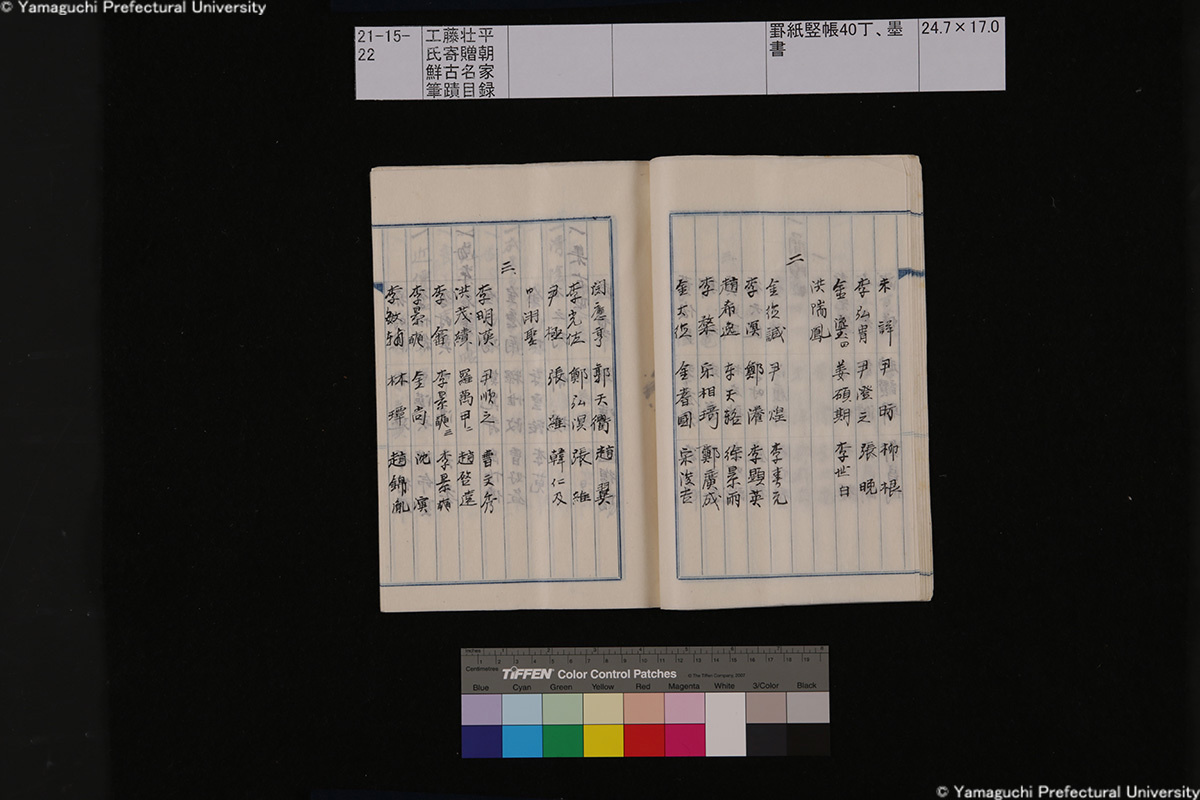 © Yamaguchi Prefectural University
21-15-22
工藤壮平
氏寄贈朝
鮮古名家
筆蹟目録
罫紙竪帳40丁、墨
書
24.7×17.0
宋詳 尹昉 柳根
李弘冑 尹澄之 張晩
金 姜碩期 李世白
洪瑞鳳
二
金俊誠 尹煌 李春元
李溟 鄭 李顕英
趙希逸 李天 徐景雨
李 宋相琦 鄭廣成
金大位 金耆國 宋浚吉
閔應亨 郭天衢 趙翼
李光佐 鄭弘溟 張維
尹極 張維 韓仁及
申湖聖
三
李明漢 尹順之 曹文秀
洪茂績 羅萬甲 趙啓遠
李 李景奭 李景
李景奭 金尚 沈演
李敏輔 林墰 趙錦胤
inches
Centimetres
TIFFEN Color Control Patches
© The Tiffen Company, 2007
Blue Cyan Green Yellow Red Magenta White 3/Color Black
© Yamaguchi Prefectural University